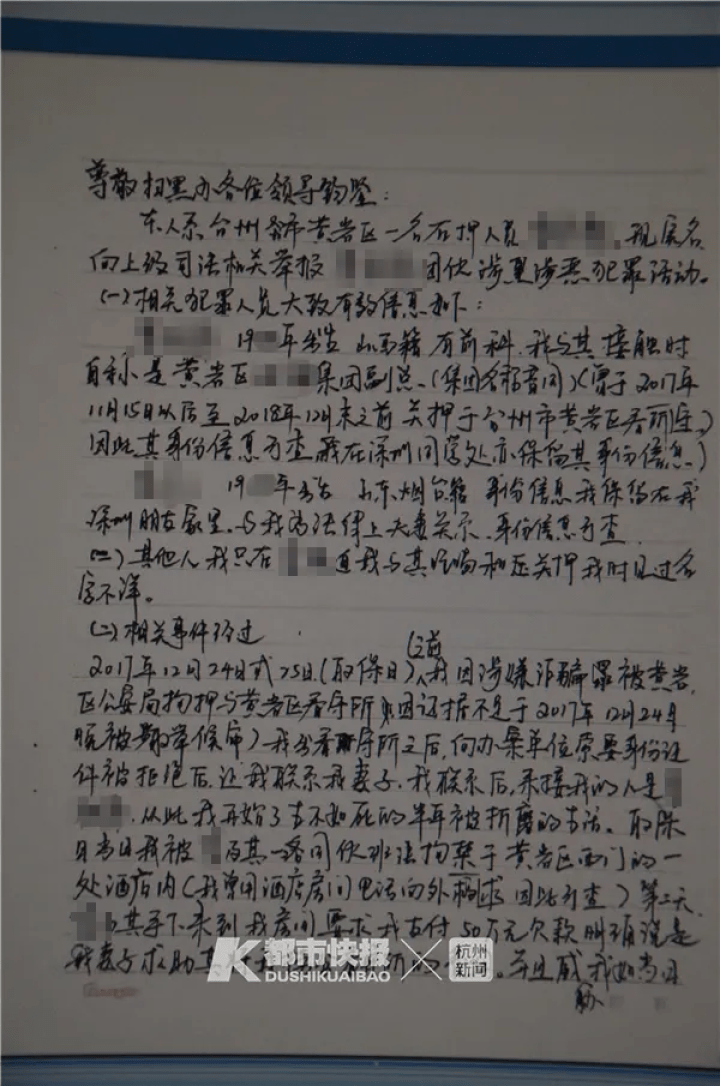 尊敬扫黑办各位领导钧鉴：
本人系台州市黄岩区一名在押人员 现实名
向上级司法机关举报 团伙涉黑涉恶犯罪活动。
(一)相关犯罪人员大致有效信息如下：
19 年出生 山东籍 有前科，我与其接触时
自称是黄岩区 集团副总、(集团名称音同)(曾于2017年
11月15日以后至2018年12月末之前关押于台州市黄岩区看所守)
因此其身份信息可查 我在深圳同学处亦保留其身份信息)
19 年出生 山东烟台籍 身份信息我保留在我
深圳朋友家里、与我为法律上夫妻关系、身份信息可查
(二)其他人我只在 逼我与其 和 关押我时见过名
字不详。
(二)相关事件经过
2017年12月24日或25日(取保日)(之前 我因涉嫌诈骗罪被黄岩
区公安局拘押与黄岩区看守所 因证据不足于2017年12月24号
晚被 候审)我出看守所之后，向办案单位索要身份证
件被拒绝后，让我联系我妻子、我联系后，来接我的人是
从此我开始了生不如死的半年被折磨的生活。取保
日当日我被 及其一客同伙非法拘禁于黄岩区西门的一
处酒店内(我曾用酒店房间电话向外 求 因此可查)第二天
与其手下来到我房间要求我支付50万元欠款 明确说是
我妻子求助其 我 所的 。并且威 我如出
胁
都市快报
DUSHIKUAIBAO
杭州
新闻